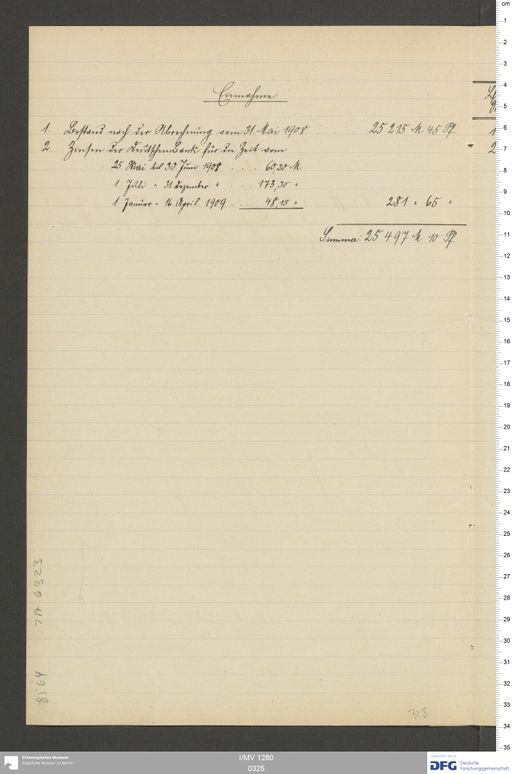 Einnahme
1. Bestand nach der Abrechnung vom 31. Mai 1908 . . 25 215 M 45 Pf.
2. Zinsen der Deutschen Bank für die Zeit vom
25. Mai bis 30 Juni 1908 . . . . 60,20 M
1 Juli " 31. Dezember " . . . 173,30 "
1 Januar " 16 April 1909 . . 48,15 " 281 " 65 "
Summa: 25 497 M 10 Pf.
318
I/MV 1280
0325
Ethnologisches Museum
Staatliche Museen zu Berlin
DFG Deutsche
Forschungsgemeinschaft
cm
1
2
3
4
5
6
7
8
9
10
11
12
13
14
15
16
17
18
19
20
21
22
23
24
25
26
27
28
29
30
31
32
33
34
35